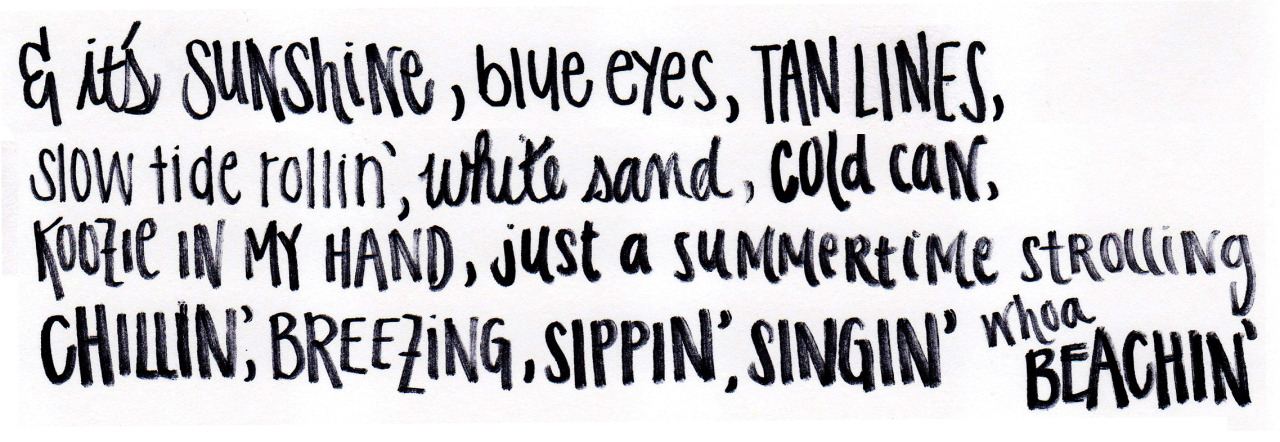 & it's SUNShiNe, blue eyes, TAN LINES,
slow tide rollin', white sand, cold caN,
KOOZIE IN MY HAND, just a suMMeRtiMe stROlliNg
CHILLIN', BREEZiNG, SIPPIN', SINGIN' whoa BEACHIN'